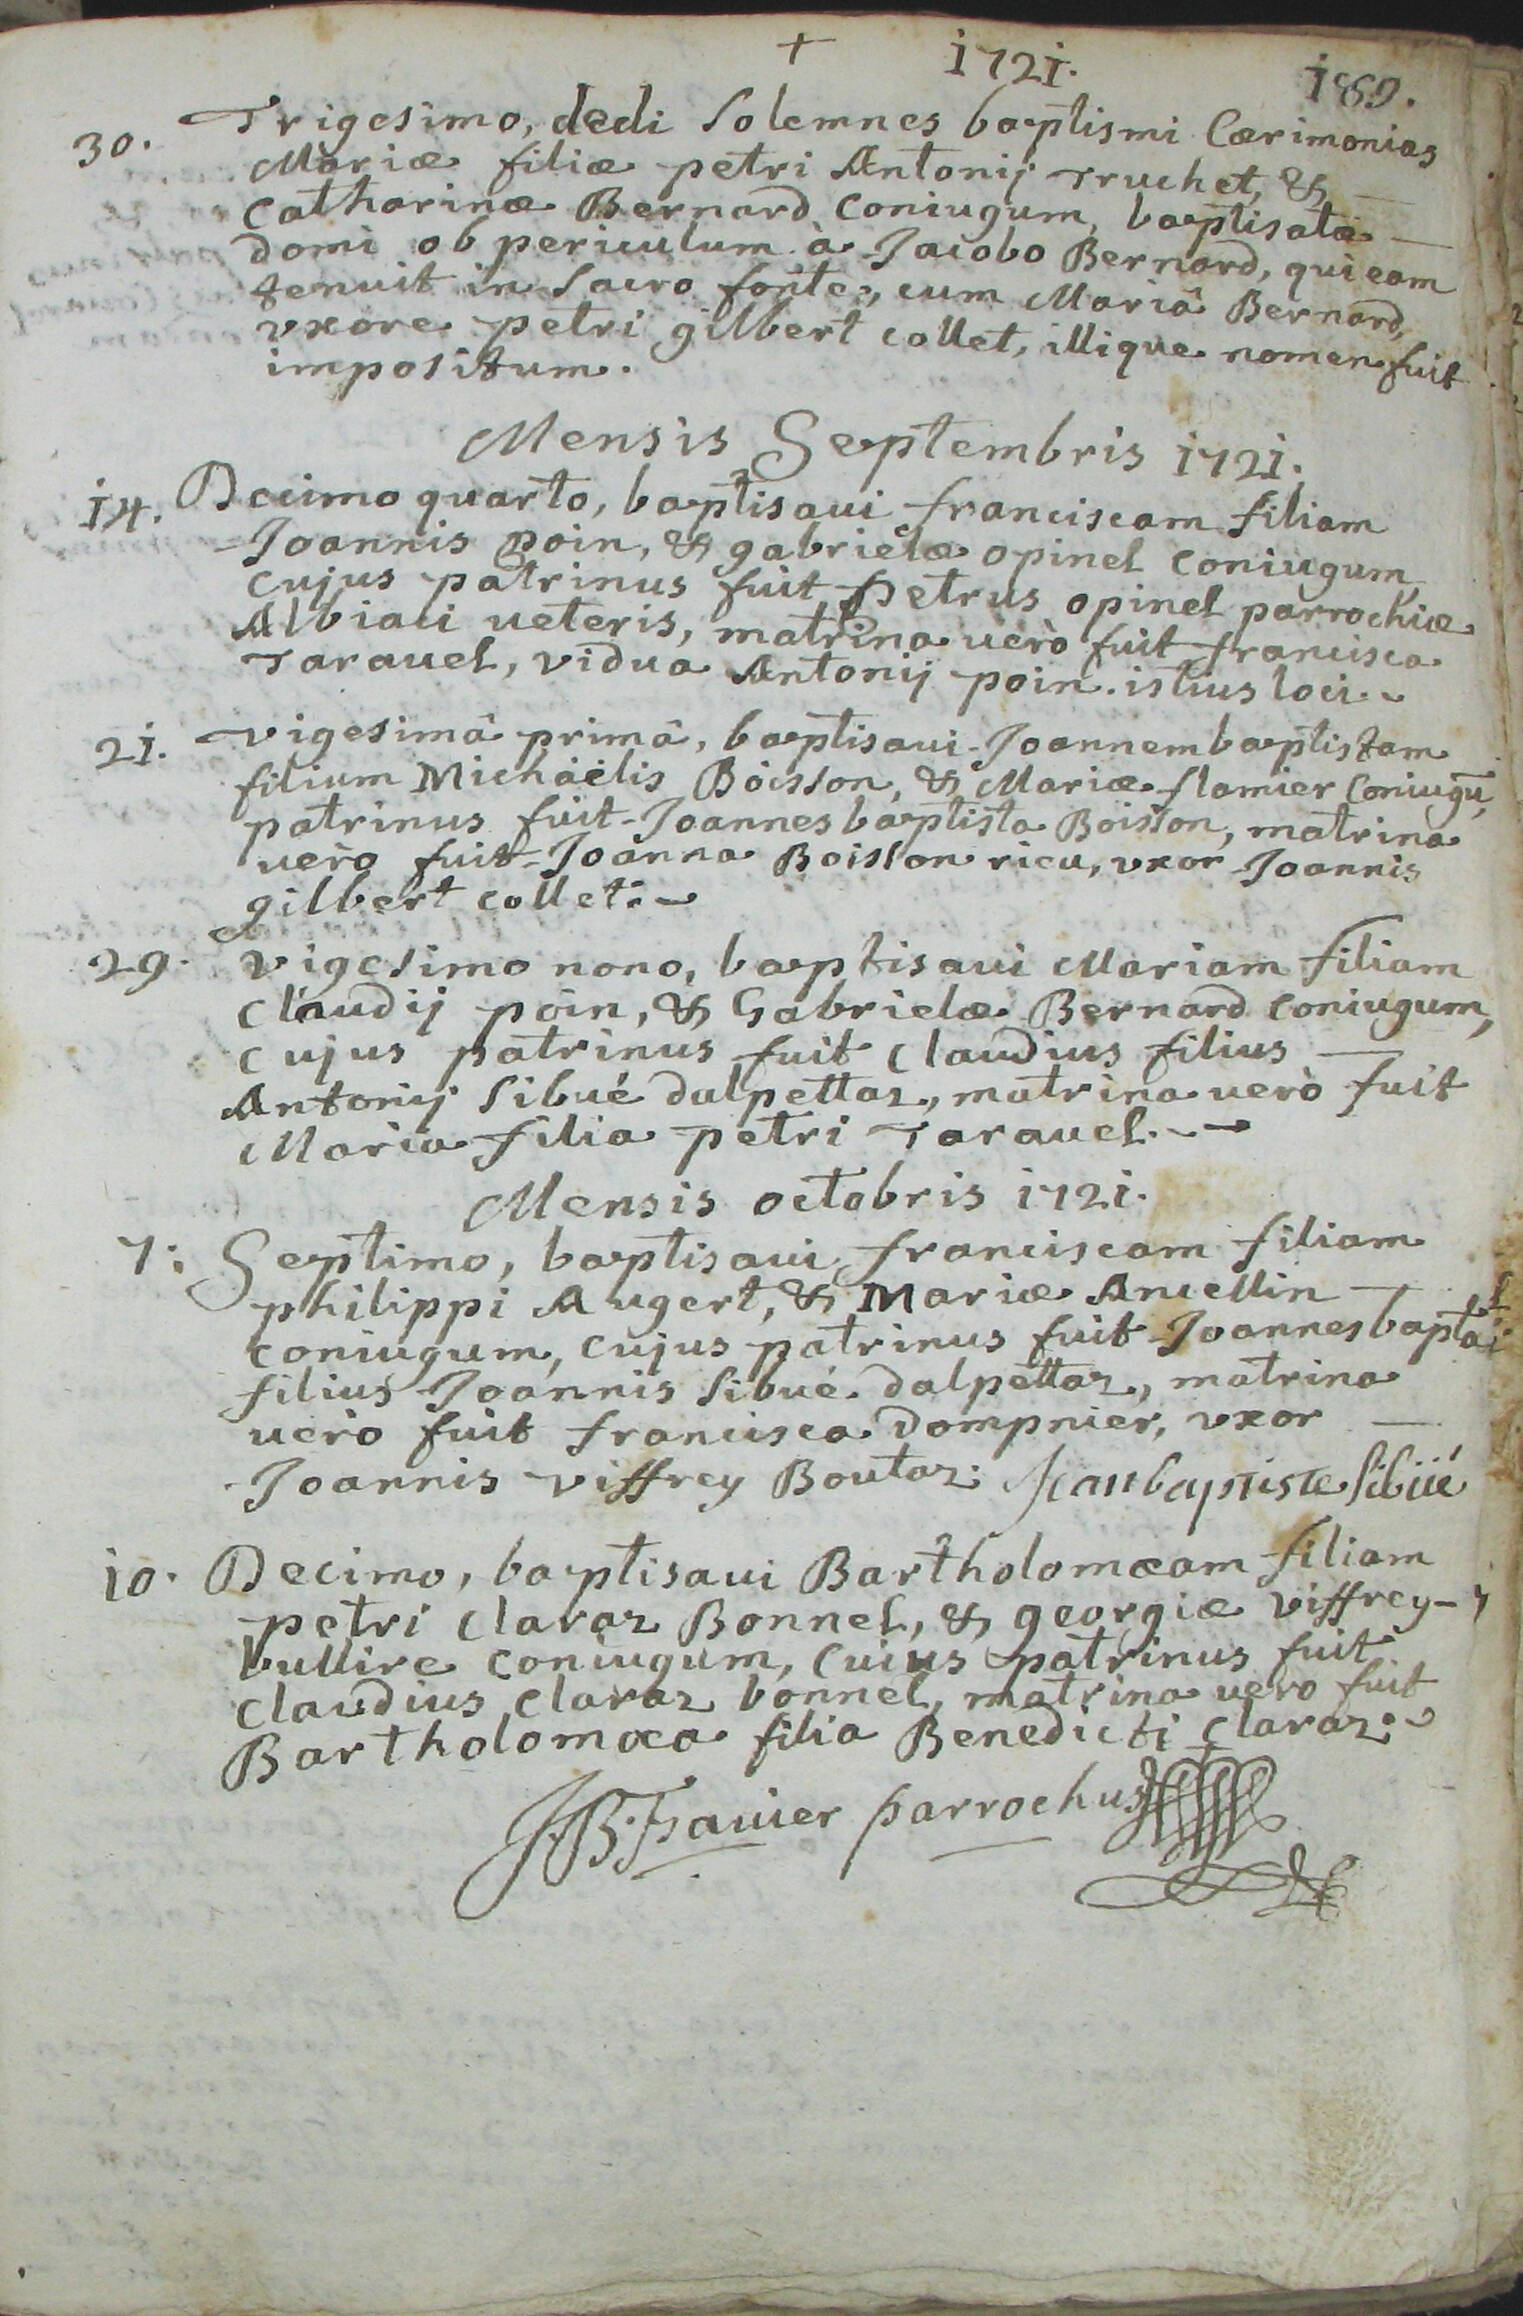 + 1721. 189.
30. Trigesimo, dedi solemnes baptismi Cærimonias
Mariæ filiæ petri Antonij Truchet, &
Catharinæ Bernard Coniugum, baptisatæ
domi ob periculum à Jacobo Bernard, qui eam
tenuit in sacro fonte, cum Mariâ Bernard,
vxore petri gilbert collet, illique nomen fuit
impositum.
Mensis Septembris 1721.
14. Decimo quarto, baptisaui franciscam filiam
Joannis poin, & gabrielæ opinel Coniugum,
cujus patrinus fuit petrus opinel parrochiæ
Albiaci ueteris, matrina uerò fuit francisca
Tarauel, vidua Antonij poin. istius loci.
21. vigesimâ primâ, baptisaui Joannem baptistam
filium Michaëlis Boisson, & Mariæ flamier Coniugū,
patrinus fuit Joannes baptista Boisson, matrina
uerò fuit Joanna Boisson ricu, vxor Joannis
gilbert collet.
29. vigesimo nono, baptisaui Mariam filiam
Claudij poin, & Gabrielæ Bernard coniugum,
cujus patrinus fuit Claudius filius
Antonij sibué dalpettaz, matrina uerò fuit
Maria filia petri Tarauel.
Mensis octobris 1721.
7. Septimo, baptisaui franciscam filiam
philippi Augert, & Mariæ Ancellin
coniugum, cujus patrinus fuit Joannes bapta
filius Joannis sibué dalpettaz, matrina
uerò fuit francisca dompnier, vxor
Joannis viffrey Boutaz. Jean baptiste sibüé
10. Decimo, baptisaui Bartholomæam filiam
petri claraz Bonnel, & georgiæ viffrey-
bullire coniugum, cuius patrinus fuit
claudius claraz bonnel, matrina uero fuit
Bartholomæa filia Benedicti claraz.
JB. Favier parrochus